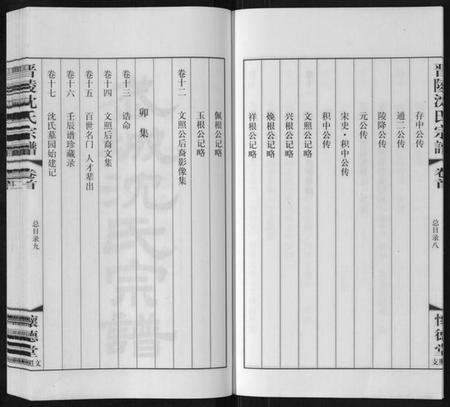 晋陵沈氏宗譜
卷首
总目录八
存中公传
通二公传
陵降公传
元公传
宋史·积中公传
积中公传
文照公记略
兴根公记略
焕根公记略
祥根公记略
佩根公记略
玉根公记略
卷十二 文照公后裔影像集
卯集
卷十三 诰命
卷十四 文照后裔文集
卷十五 百世名门 人才辈出
卷十六 壬辰谱珍藏录
卷十七 沈氏墓园始建记
晋陵沈氏宗譜
卷首
总目录九
懷德堂